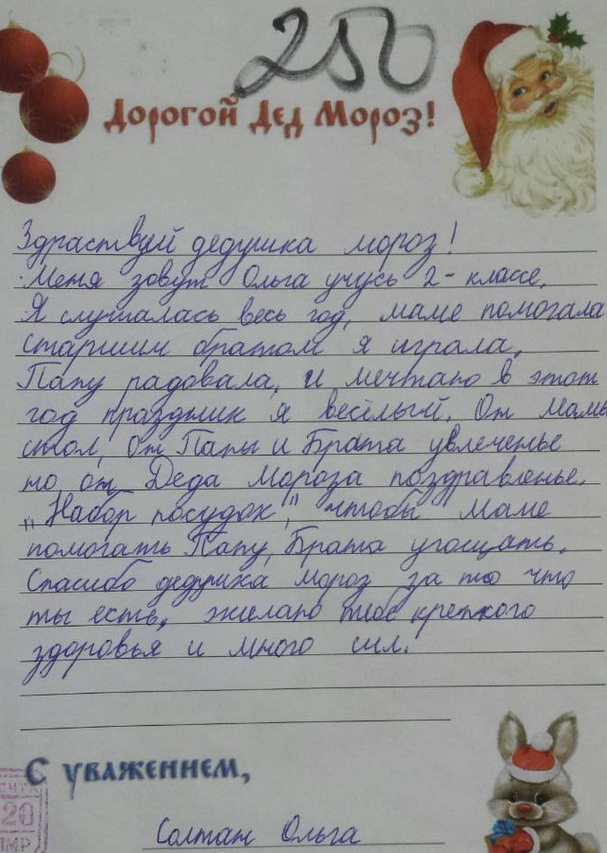 250
Дорогой Дед Мороз!
Здраствуй дедушка мороз!
Меня зовут Ольга учусь 2-классе.
Я слушалась весь год, маме помогала
старшим братом я играла.
Папу радовала, и мечтаю в этот
год праздник я весёлый. От мамы
стол, от Папы и Брата увлеченье
но от Деда Мороза поздравленье.
„Набор посудок," чтобы маме
помогать Папу, Брата угощать.
Спасибо дедушка мороз за то что
ты есть, желаю тебе крепкого
здоровья и много сил.
С уважением,
20
ПМР
Солтан Ольга